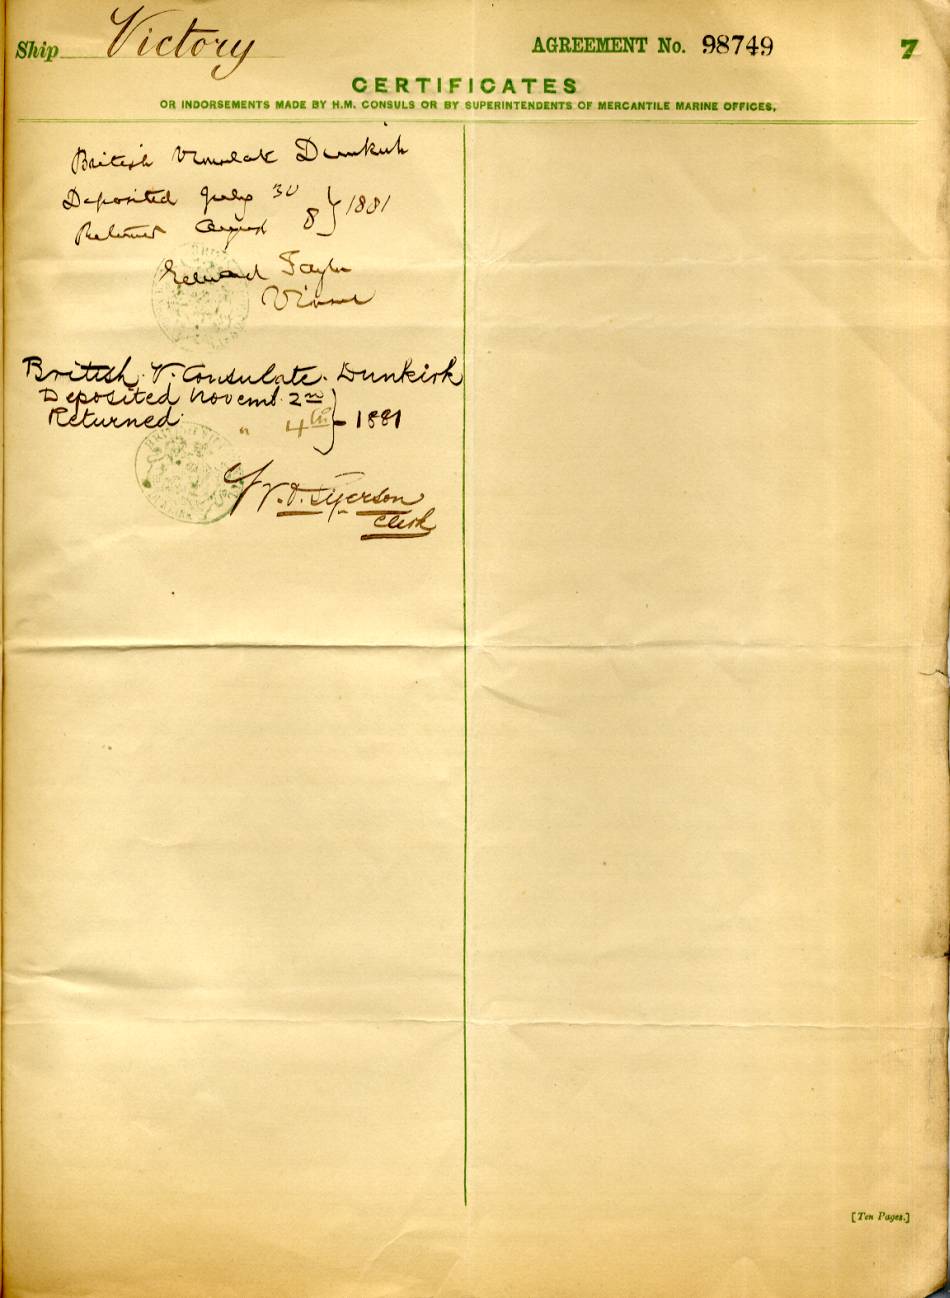 Ship Victory
AGREEMENT No. 98749
7
CERTIFICATES
OR INDORSEMENTS MADE BY H.M. CONSULS OR BY SUPERINTENDENTS OF MERCANTILE MARINE OFFICES.
British Dunkirk
Deposited July 30
Returned August 8 } 1881
Edward Taylor
British V. Consulate. Dunkirk
Deposited Novemb. 2nd
Returned " 4th } - 1881
Clerk
[Ten Pages.]